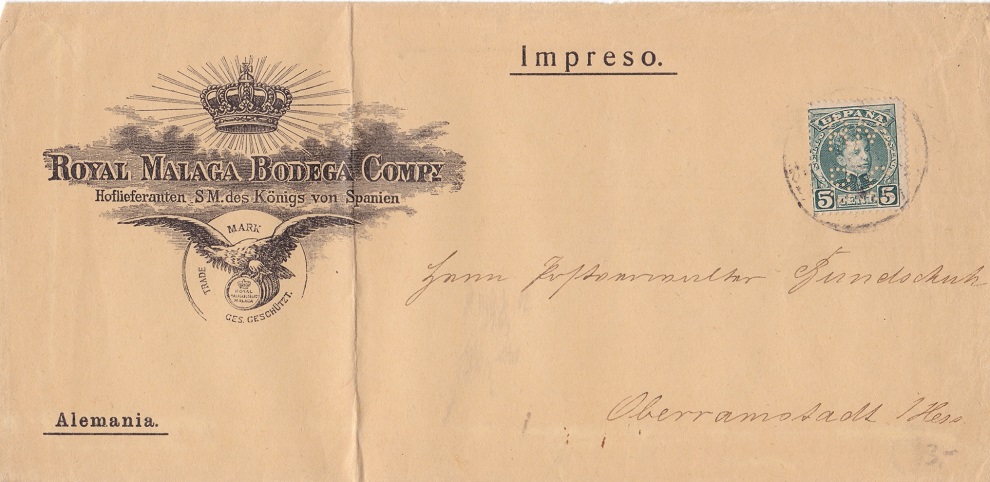 Impreso.
ROYAL MALAGA BODEGA COMPY.
Hoflieferanten S.M. des Königs von Spanien
TRADE MARK
ROYAL
MALAGA
GES. GESCHÜTZT.
ESPAÑA
5 CENT. 5
Herrn Postverwalter Bundschuh
Oberramstadt /Hess
Alemania.
3.-